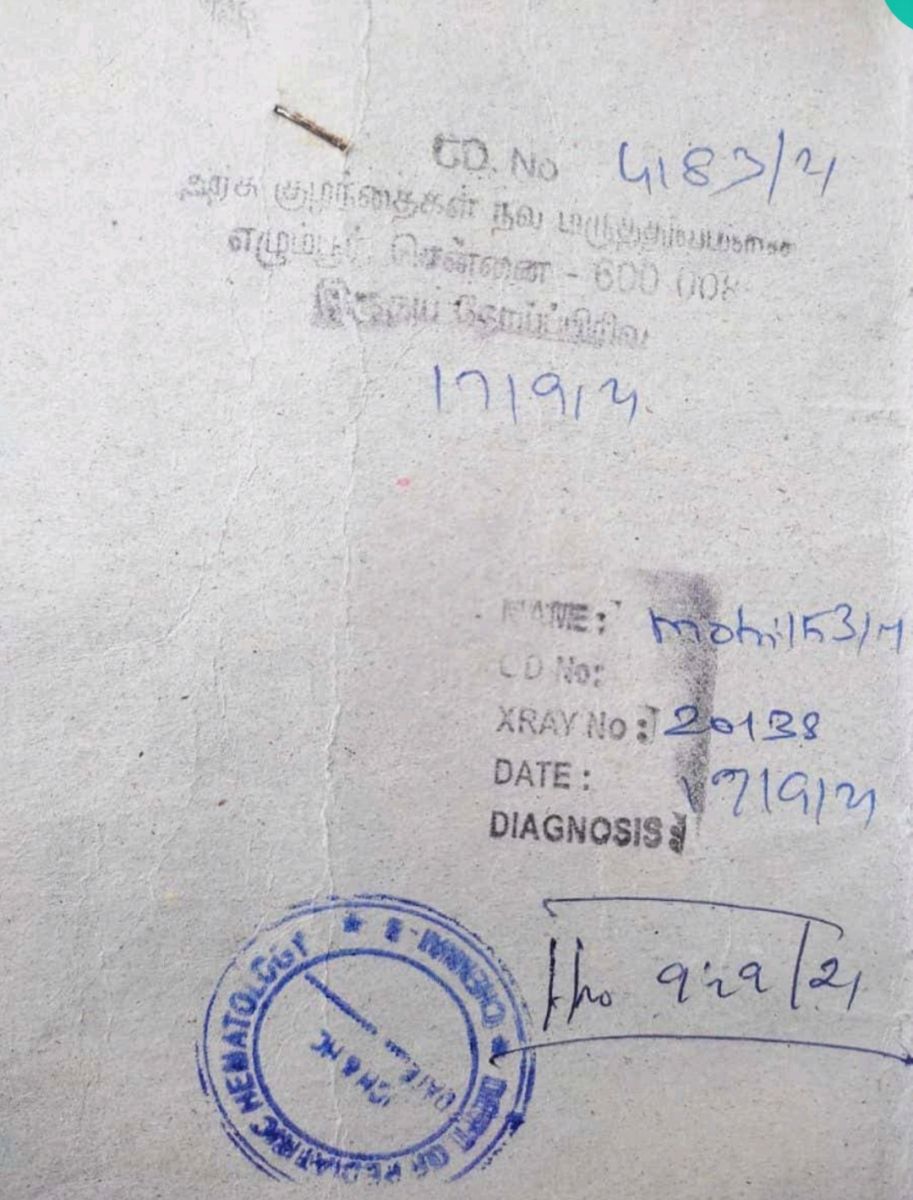 CD. No 4183/21
அரசு குழந்தைகள் நல மருத்துவமனை
எழும்பூர் சென்னை - 600 008
இருதய நோய்ப்பிரிவு
17/9/21
NAME:
CD No:
XRAY No: 20138
DATE: 17/9/21
DIAGNOSIS:
DEPT OF PEDIATRIC HEMATOLOGY ★ CHENNAI - 8 ★
ICH & HC
DATE